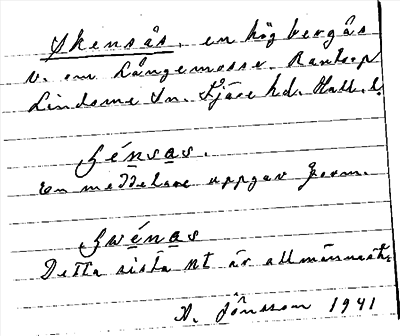 Skensås, en hög bergås
v. om Långemosse. Ranto
Lindome sn. Fjäre hd. Hall. l.
Sénsas.
En meddelare uppgav form.
Swénas
Detta sista nt är allmännast.
A. Jönsson 1941